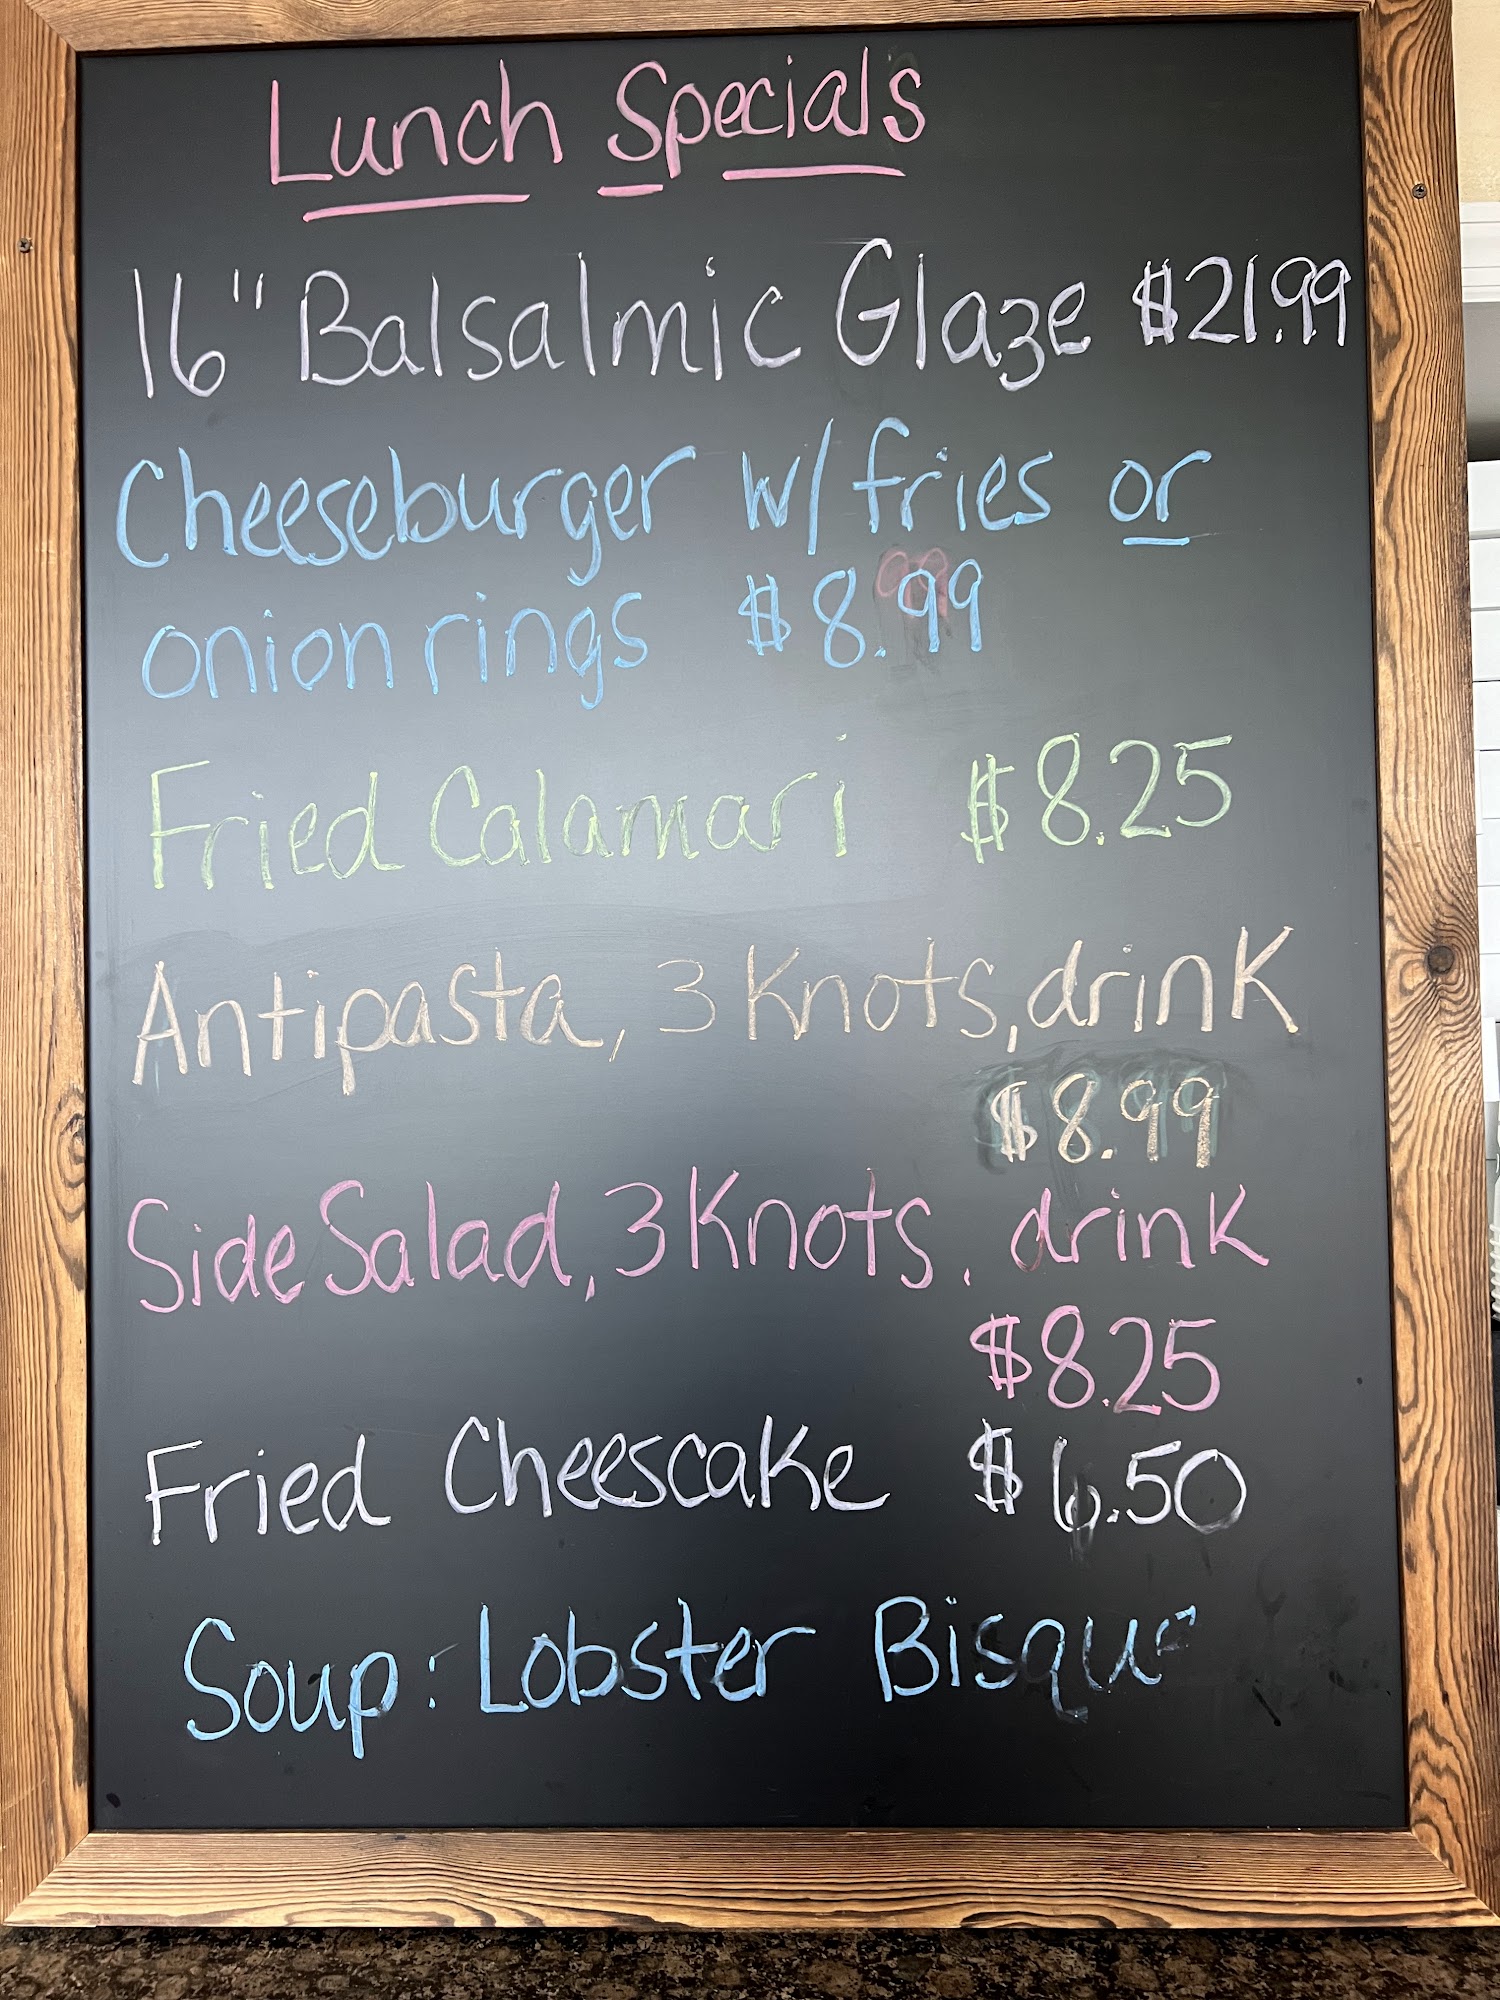 Lunch Specials
16" Balsalmic Glaze $21.99
Cheeseburger w/ fries or
onion rings $8.99
Fried Calamari $8.25
Antipasta, 3 Knots, drink
$8.99
Side Salad, 3 Knots, drink
$8.25
Fried Cheescake $6.50
Soup: Lobster Bisque